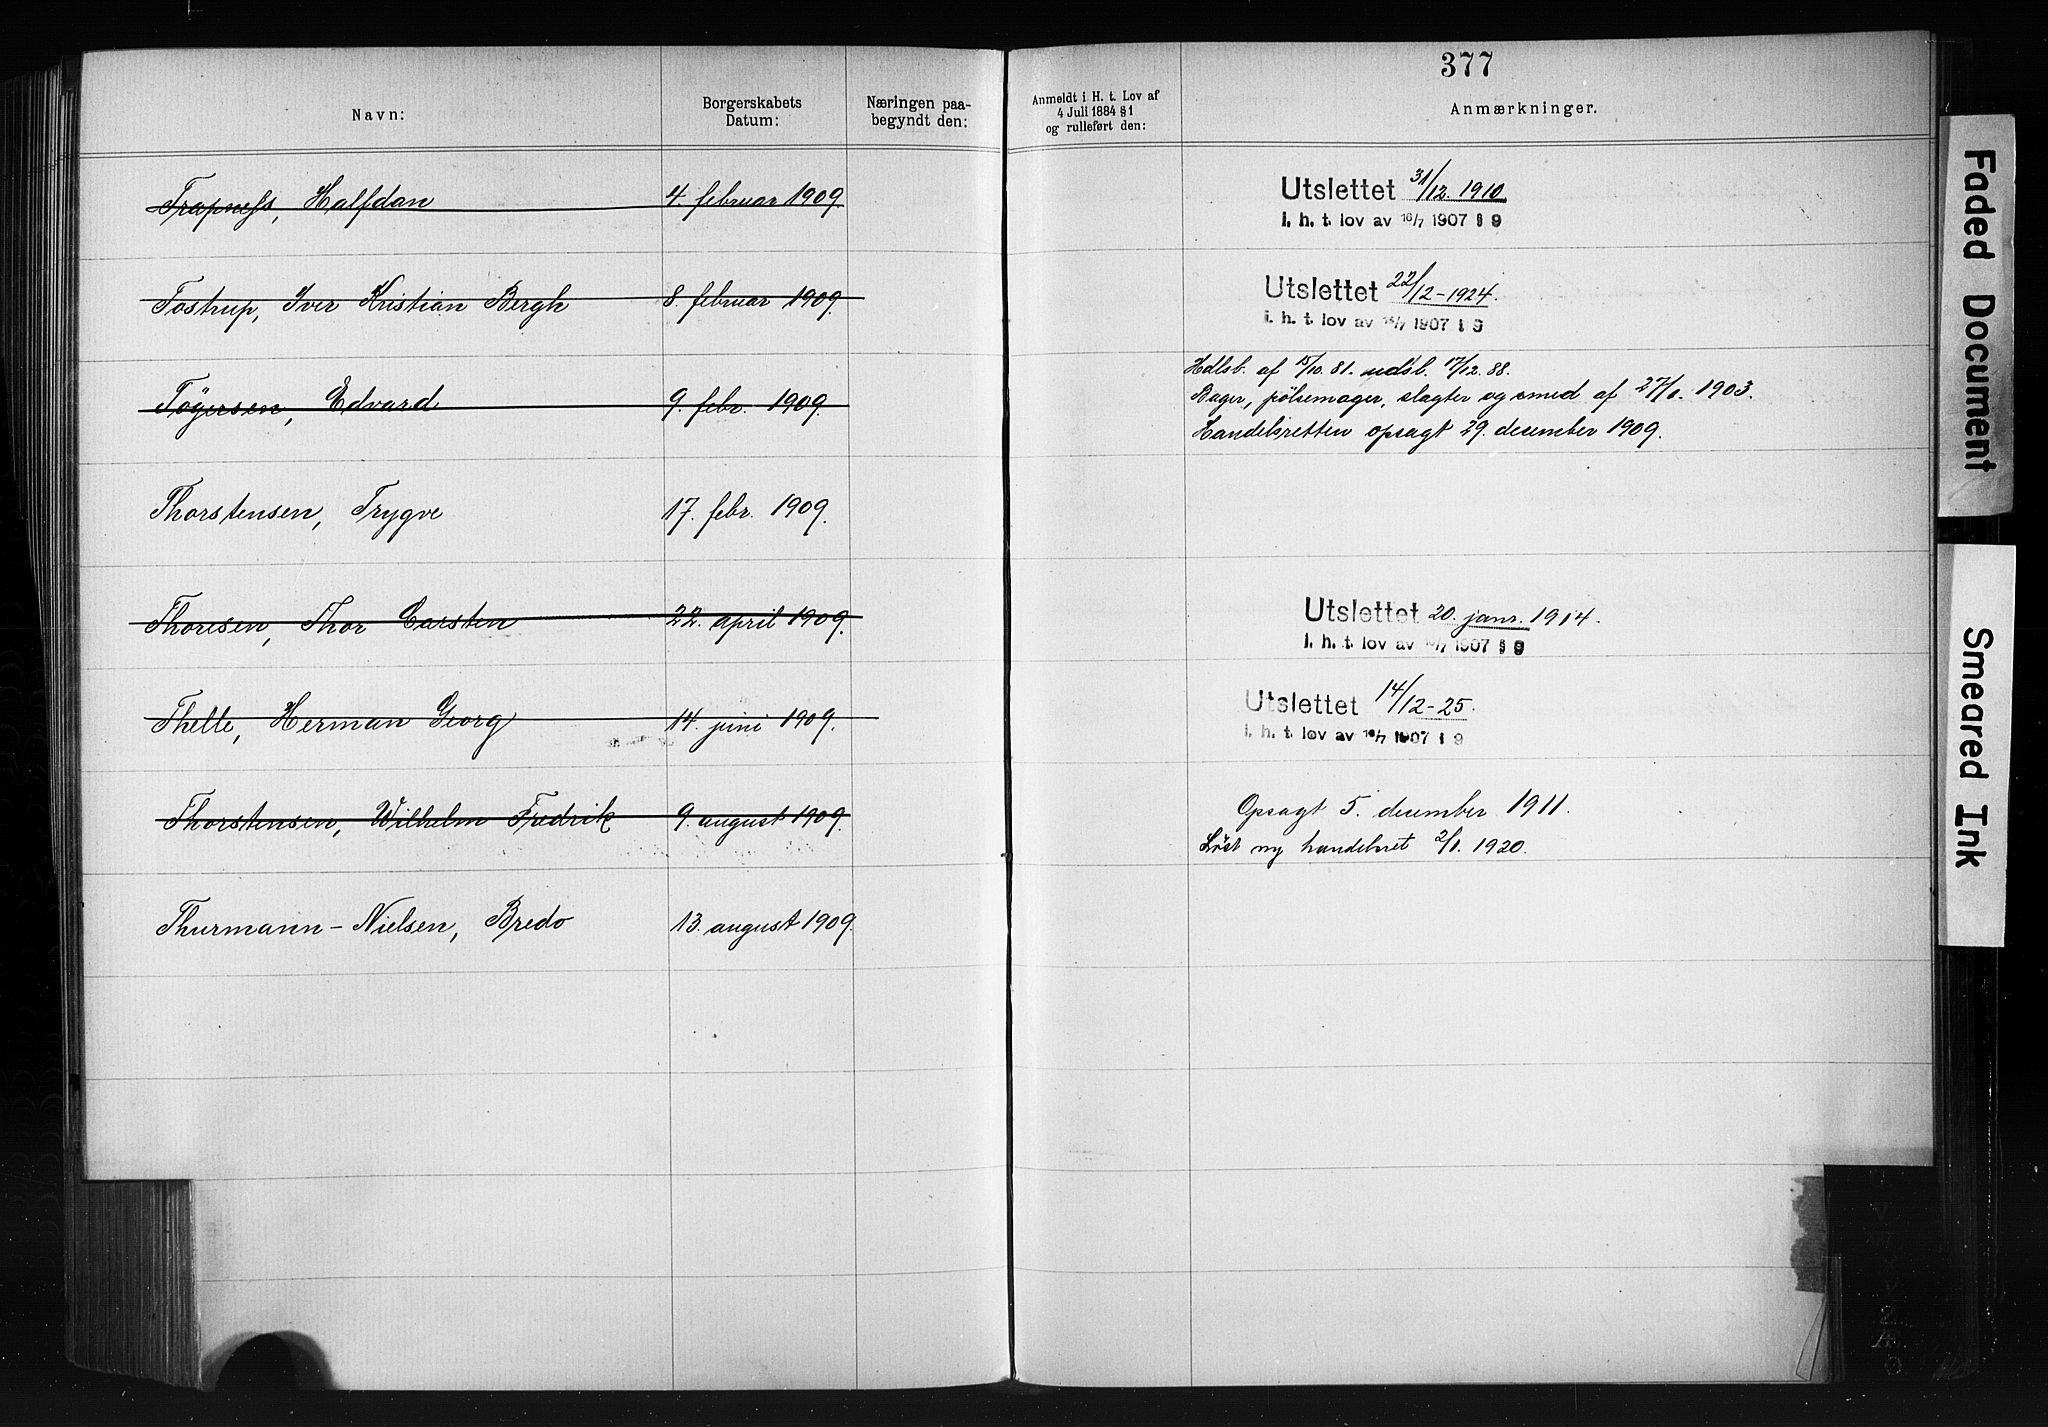 377
Navn:
Borgerskabets
Datum:
Næringen paa-
begyndt den:
Anmeldt i H. t. Lov af
4 Juli 1884 § 1
og rulleført den:
Anmærkninger.
Trapness, Halfdan 4 februar 1909. Utslettet 31/12. 1910.
i. h. t. lov av 16/7 1907 § 9
Tostrup, Iver Kristian Bergh 8. februar 1909. Utslettet 22/12-1924.
i. h. t. lov av 16/7 1907 § 9
Hdlsb. af 15/10. 81. udsb. 17/12. 88.
Töyersen, Edvard 9. febr. 1909. Bager, pölsemager, slagter og smed af 27/1. 1903.
Handelsretten opsagt 29. december 1909.
Thorstensen, Trygve 17. febr. 1909.
Thoresen, Thor Carsten 22. april 1909. Utslettet 20. janr. 1914.
i. h. t. lov av 16/7 1907 § 9
Thelle, Herman Georg 14. juni 1909. Utslettet 14/12-25.
i. h. t. lov av 16/7 1907 § 9
Thorstensen, Wilhelm Fredrik 9. august 1909. Opsagt 5. december 1911.
Löst ny handelsret 2/1. 1920.
Thurmann-Nielsen, Bredo 13. august 1909.
Faded Document
Smeared Ink